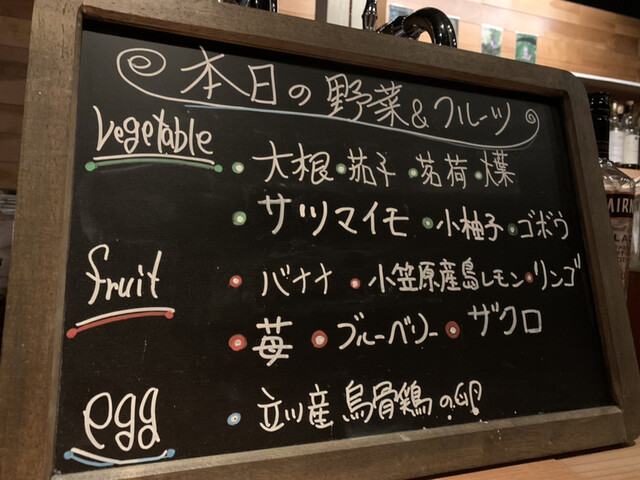 本日の野菜&フルーツ
Vegetable
・大根・茄子・茗荷・大葉
・サツマイモ・小柚子・ゴボウ
fruit
・バナナ・小笠原産島レモン・リンゴ
・苺・ブルーベリー・ザクロ
egg
・立川産烏骨鶏の卵